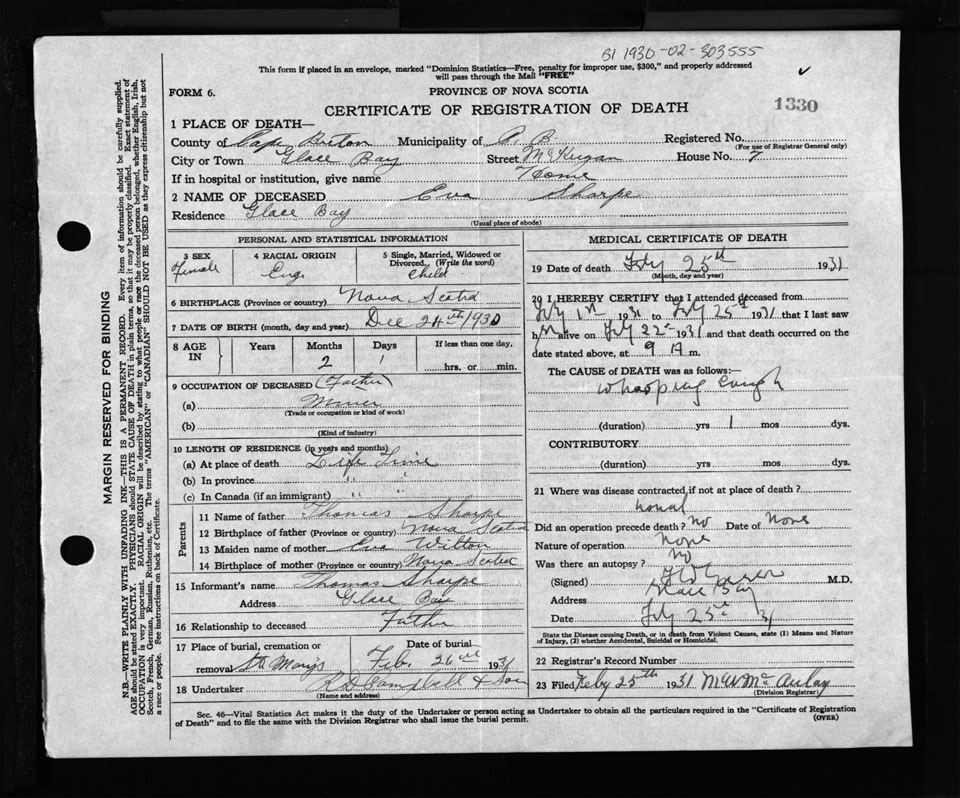 B1 1930-02-303555
This form if placed in an envelope, marked "Dominion Statistics—Free, penalty for improper use, $300," and properly addressed
will pass through the Mail "FREE"
FORM 6.
PROVINCE OF NOVA SCOTIA
CERTIFICATE OF REGISTRATION OF DEATH
1330
1 PLACE OF DEATH—
County of Cape Breton Municipality of C. B. Registered No.
(For use of Registrar General only)
City or Town Glace Bay Street McKeigan House No. 7
If in hospital or institution, give name Home
2 NAME OF DECEASED Eva Sharpe
Residence Glace Bay
(Usual place of abode)
PERSONAL AND STATISTICAL INFORMATION
3 SEX
Female
4 RACIAL ORIGIN
Eng.
5 Single, Married, Widowed or
Divorced. (Write the word)
Child
6 BIRTHPLACE (Province or country) Nova Scotia
7 DATE OF BIRTH (month, day and year) Dec 24th 1930
8 AGE
IN
Years
Months
2
Days
1
If less than one day,
hrs. or min.
9 OCCUPATION OF DECEASED (Father)
(a) Miner
(Trade or occupation or kind of work)
(b)
(Kind of industry)
10 LENGTH OF RESIDENCE (in years and months)
(a) At place of death Life Time
(b) In province " "
(c) In Canada (if an immigrant) " "
Parents
11 Name of father Thomas Sharpe
12 Birthplace of father (Province or country) Nova Scotia
13 Maiden name of mother Eva Wilton
14 Birthplace of mother (Province or country) Nova Scotia
15 Informant's name Thomas Sharpe
Address Glace Bay
16 Relationship to deceased Father
17 Place of burial, cremation or
removal St. Marys
Date of burial
Feb. 26 1931
18 Undertaker R D Campbell & Son
(Name and address)
MEDICAL CERTIFICATE OF DEATH
19 Date of death Feby 25th 1931
(Month, day and year)
20 I HEREBY CERTIFY that I attended deceased from
Feby 1st 1931 to Feby 25th 1931 that I last saw
h alive on Feby 22 1931 and that death occurred on the
date stated above, at 9 A m.
The CAUSE of DEATH was as follows:
whooping cough
(duration) yrs 1 mos dys.
CONTRIBUTORY
(duration) yrs. mos. dys.
21 Where was disease contracted if not at place of death?
Did an operation precede death? no Date of None
Nature of operation None
Was there an autopsy? No
(Signed) M.D.
Address Glace Bay
Date Feby 25 31
State the Disease causing Death, or in death from Violent Causes, state (1) Means and Nature
of Injury, (2) whether Accidental, Suicidal or Homicidal.
22 Registrar's Record Number
23 Filed Feby 25th 1931 McAulay
(Division Registrar)
Sec. 46—Vital Statistics Act makes it the duty of the Undertaker or person acting as Undertaker to obtain all the particulars required in the "Certificate of Registration
of Death" and to file the same with the Division Registrar who shall issue the burial permit.
(OVER)
MARGIN RESERVED FOR BINDING
N.B.—WRITE PLAINLY WITH UNFADING INK—THIS IS A PERMANENT RECORD. Every item of information should be carefully supplied.
AGE should be stated EXACTLY. PHYSICIANS should STATE CAUSE OF DEATH in plain terms, so that it may be properly classified. Exact statement of
OCCUPATION is very important. RACIAL ORIGIN will be described by stating to what people or race the deceased person belonged, whether English, Irish,
Scotch, French, German, Russian, Ruthenian, etc. The terms "AMERICAN" or "CANADIAN" SHOULD NOT BE USED as they express citizenship but not
a race or people. See instructions on back of Certificate.